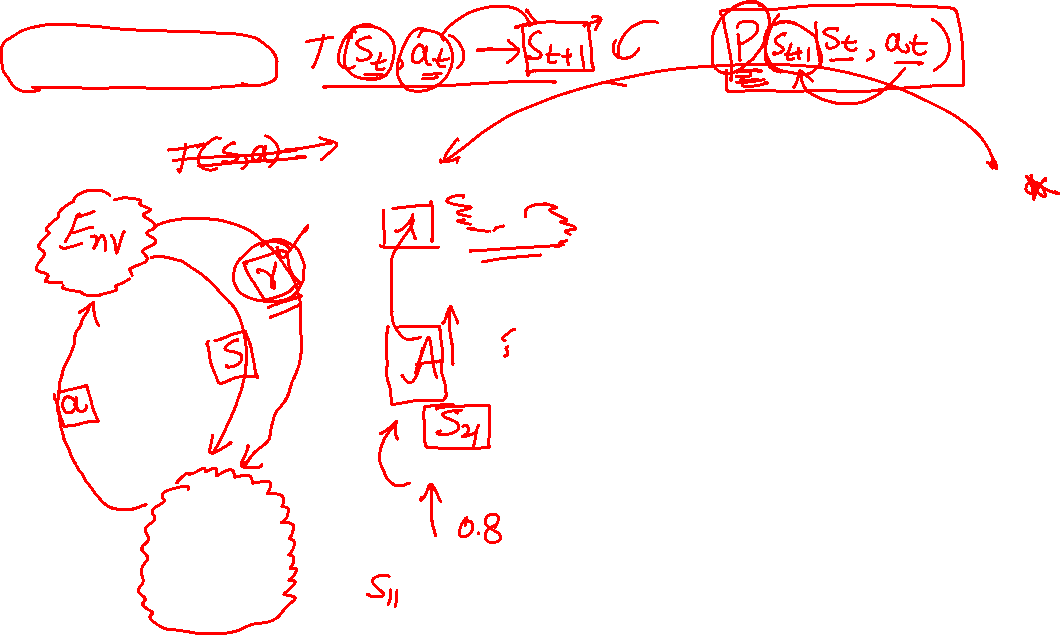 T(St, at) → St+1 C P(St+1|St, at)
T(S,a) →
Env
r
1
S
A
a
S24
0.8
S11